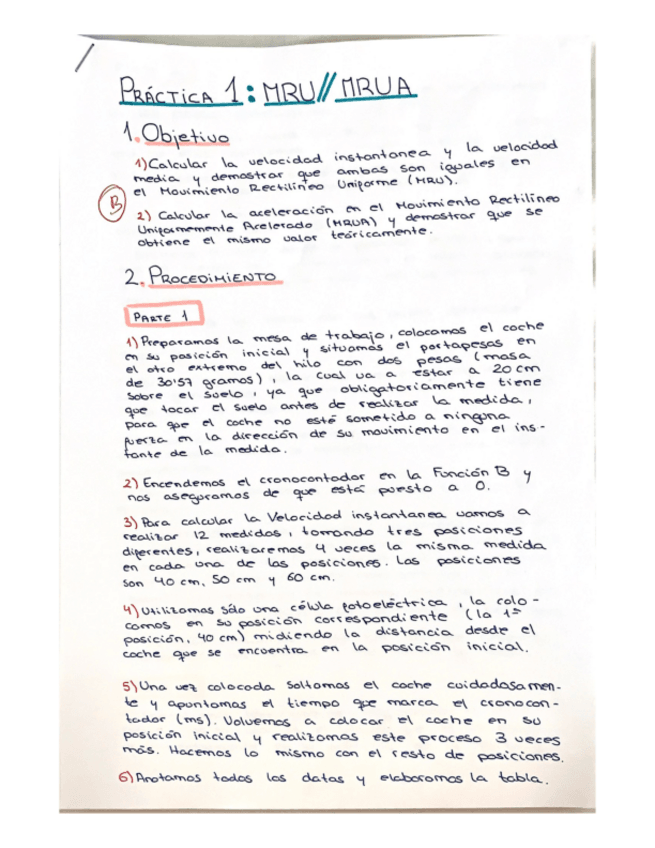 PRÁCTICA 1: MRU//MRUA
1. Objetivo
1) Calcular la velocidad instantonea y la velocidad
media y demostrar que ambas son iguales en
el Movimiento Rectilíneo Uniforme (MRU).
B
2) Calcular la aceleración en el Movimiento Rectilíneo
Uniformemente Acelerado (MRUA) y demostrar que se
obtiene el mismo valor teóricamente.
2. PROCEDIMIENTO
PARTE 1
1) Preparamos la mesa de trabajo, colocamos el coche
en su posición inicial y situamos el portapesas en
el otro extremo del hilo con dos pesas (masa
de 30'57 gramos), la cual va a estar a 20 cm
sobre el suelo, ya que obligatoriamente tiene
que tocar el suelo antes de realizar la medida,
para que el coche no esté sometido a ninguna
fuerza en la dirección de su movimiento en el ins-
tante de la medida.
2) Encendemos el cronocontador en la Función B y
nos aseguramos de que esté puesto a 0.
3) Para calcular la Velocidad instantanea vamos a
realizar 12 medidas, tomando tres posiciones
diferentes, realizaremos 4 veces la misma medida
en cada una de las posiciones. Las posiciones
son 40 cm, 50 cm y 60 cm.
4) Utilizamos sólo una célula fotoeléctrica, la colo-
camos en su posición correspondiente (la 1ª
posición, 40 cm) midiendo la distancia desde el
coche que se encuentra en la posición inicial.
5) Una vez colocada soltamos el coche cuidadosamen-
te y apuntamos el tiempo que marca el cronocon-
tador (ms). Volvemos a colocar el coche en su
posición inicial y realizamos este proceso 3 veces
más. Hacemos lo mismo con el resto de posiciones.
6) Anotamos todos los datos y elaboramos la tabla.